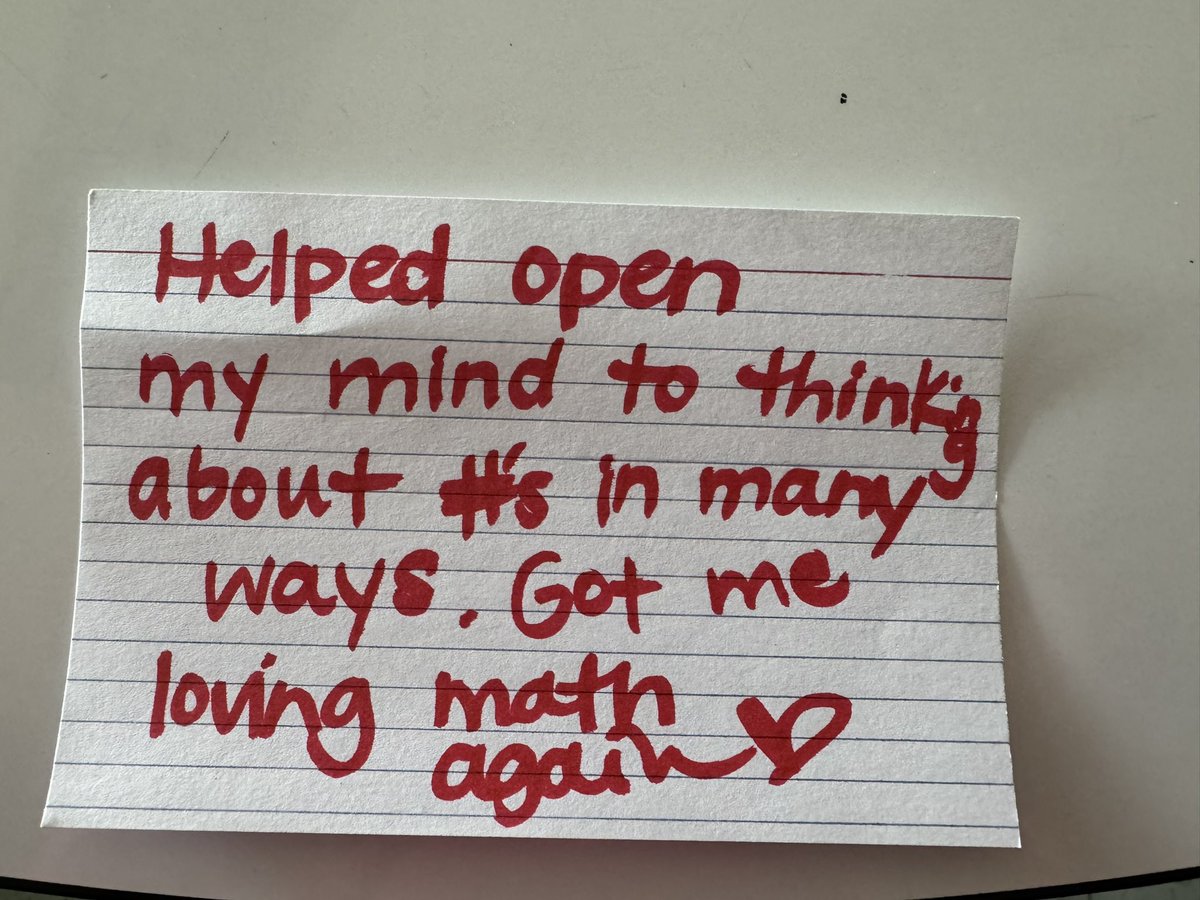 Helped open
my mind to thinking
about #'s in many
ways. Got me
loving math
again